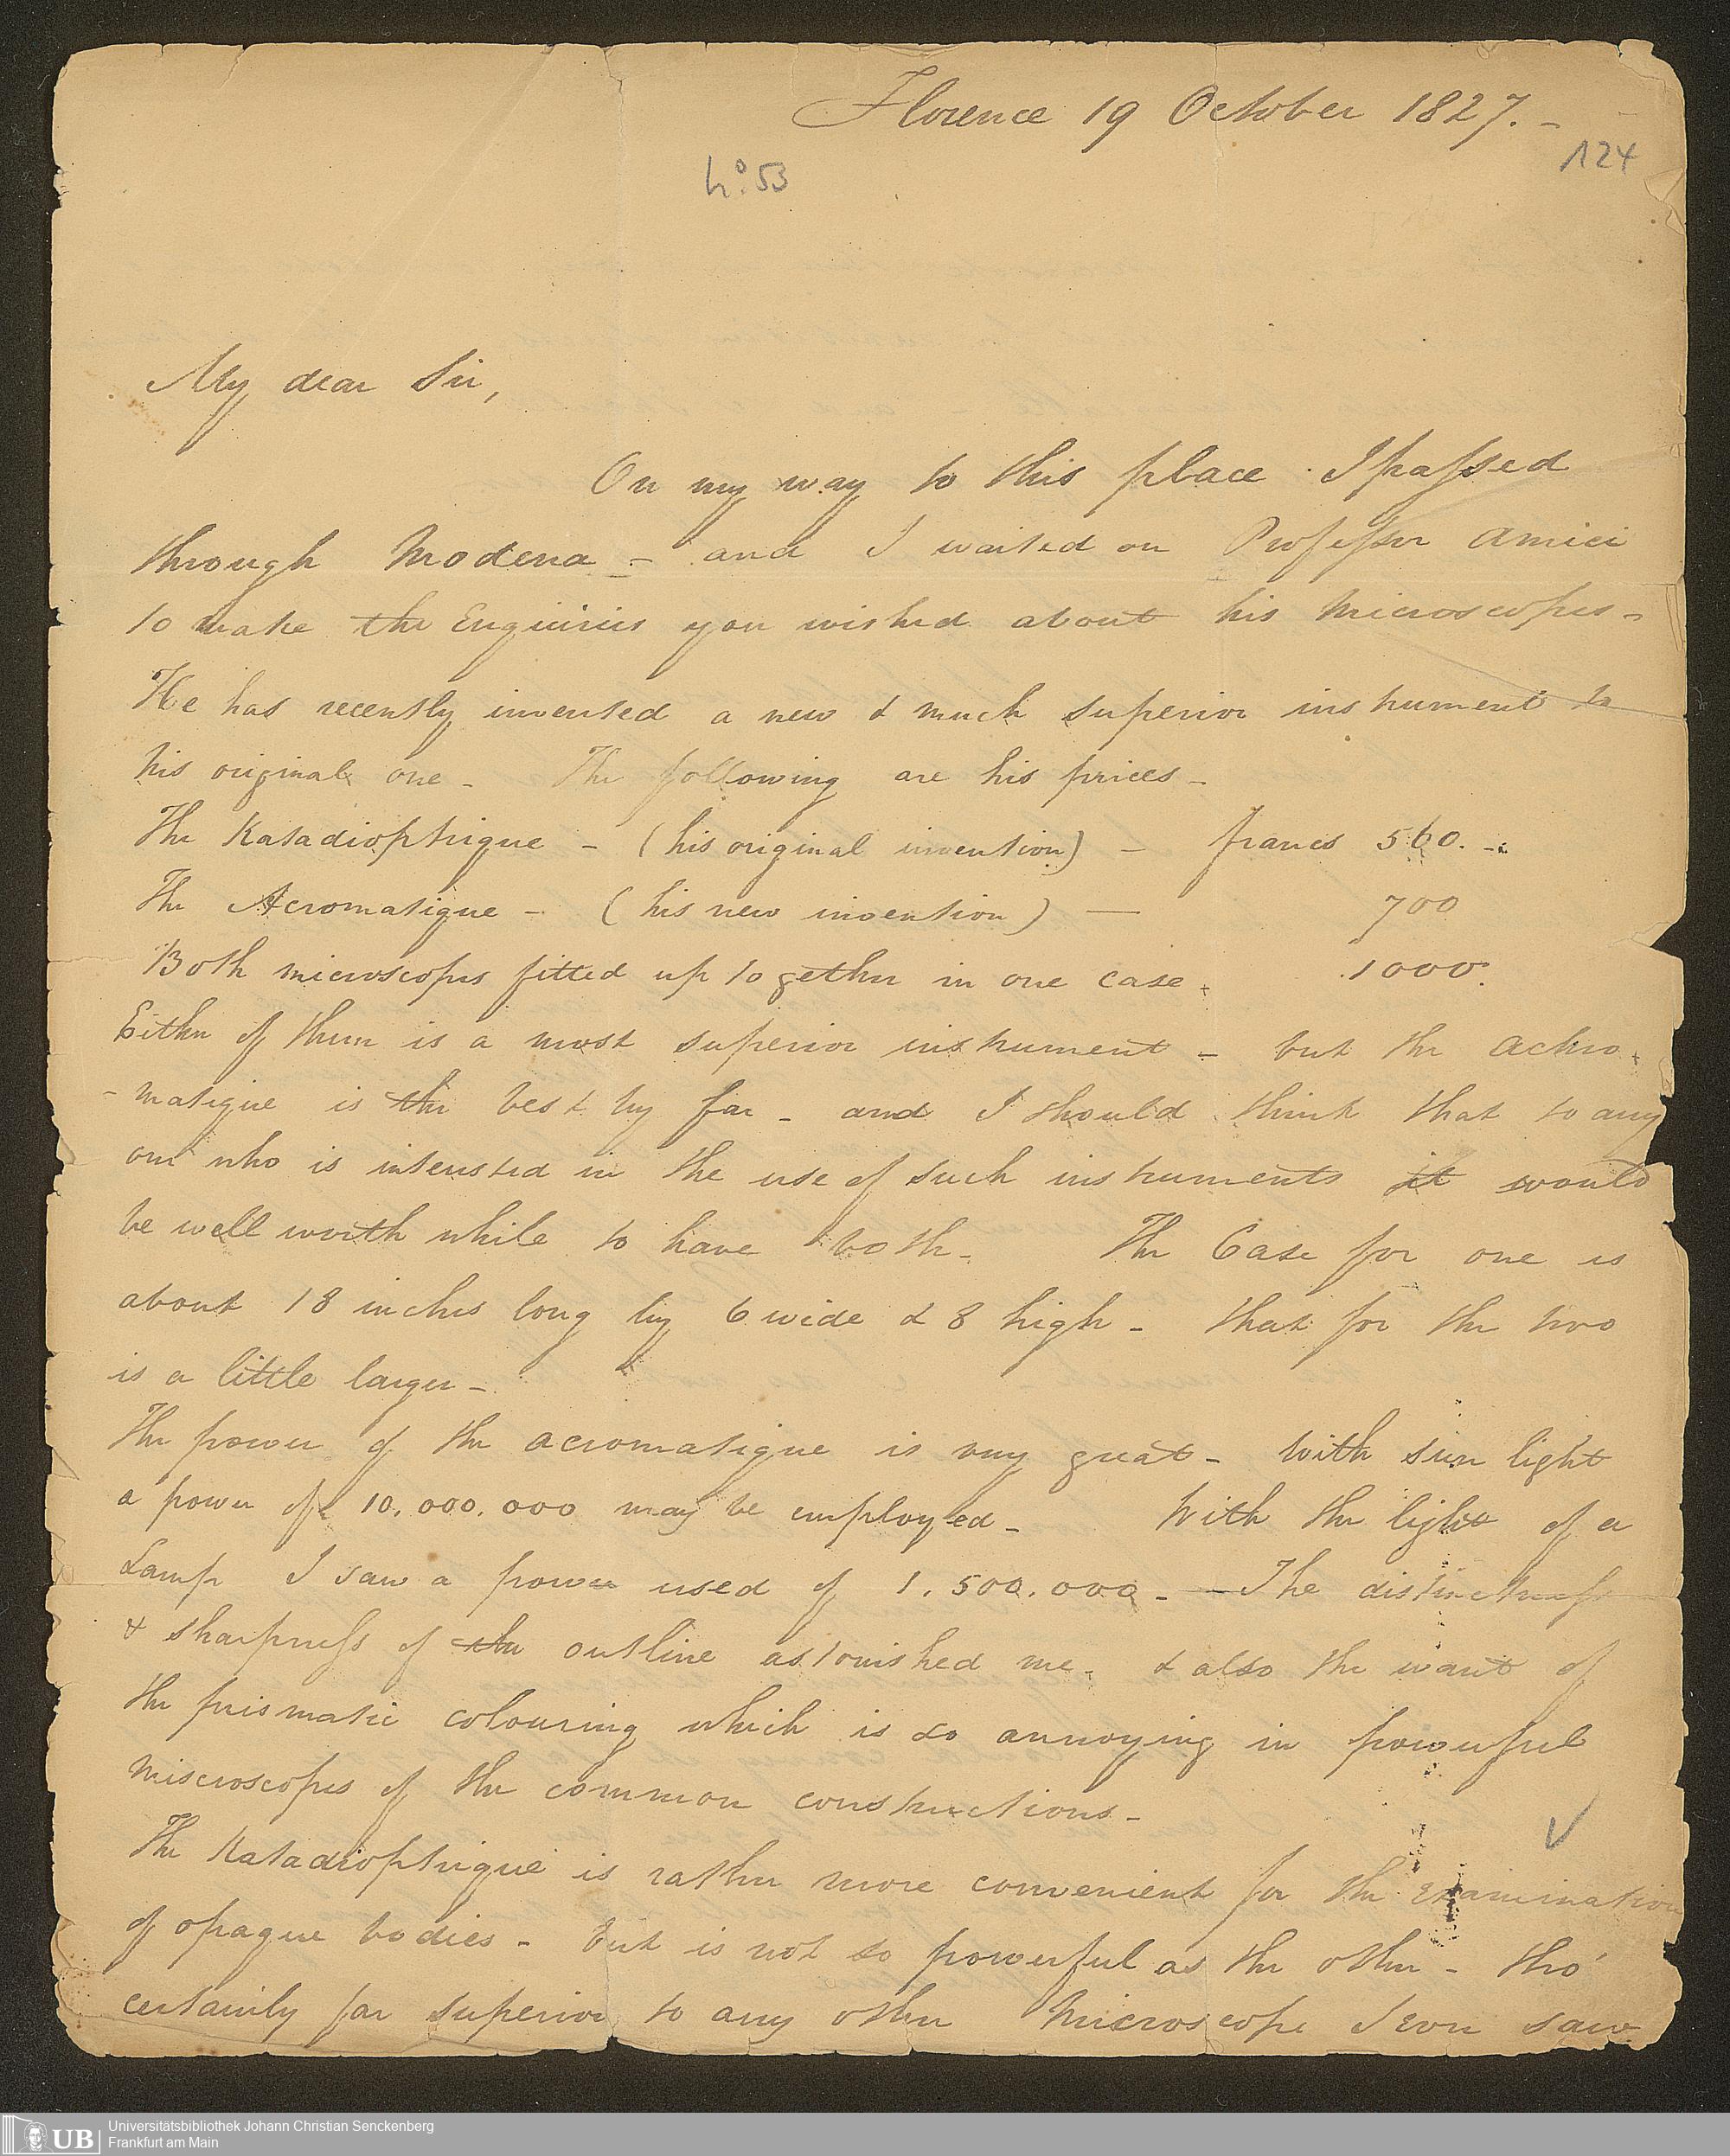 Florence 19 October 1827. -
124
No. 53
My dear Sir,
On my way to this place I passed
through Modena - and I waited on Professor Amici
to make the Enquiries you wished about his Microscopes -
He has recently invented a new & much superior instrument to
his original one - The following are his prices -
The Katadioptrique - (his original invention) - francs 560. -
The Acromatique - (his new invention) - 700
Both microscopes fitted up together in one case. 1000.
Either of them is a most superior instrument - but the Achro-
-matique is the best by far - and I should think that to any
one who is interested in the use of such instruments it would
be well worth while to have both - The Case for one is
about 18 inches long by 6 wide & 8 high - that for the two
is a little larger -
The power of the acromatique is very great - With sun light
a power of 10.000.000 may be employed - With the light of a
Lamp I saw a power used of 1.500.000 - The distinctness
& sharpness of the outline astonished me - & also the want of
the prismatic colouring which is so annoying in powerful
miscroscopes of the common constructions -
The Katadioptrique is rather more convenient for the examination
of opaque bodies - but is not so powerful as the other - tho'
certainly far superior to any other Microscope I ever saw
UB
Universitätsbibliothek Johann Christian Senckenberg
Frankfurt am Main